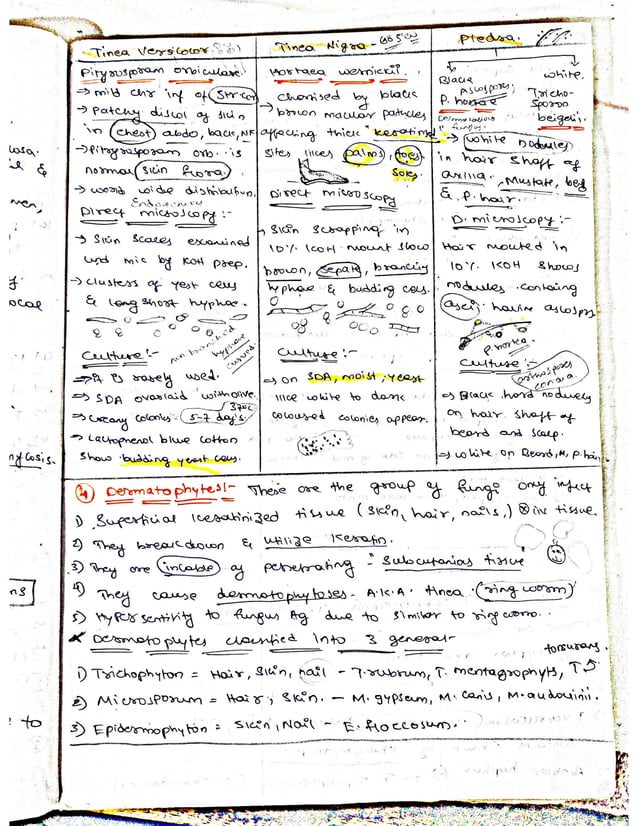 Tinea Versicolor
Pityrosporam orbiculare.
→ mild chr inf of Stricor
→ Patchy discol of skin
in chest abdo, back, NK
→ Pityrosporam orb. is
normal skin flora
→ word wide distribution.
Endogenous
Direct microscopy :-
→ Skin scales examined
und mic by KOH prep.
→ clusters of yest cells
& long short hyphae.
non branched hyphae curved
Culture :-
→ it is rarely used.
→ SDA overlaid with olive.
→ creamy colonies 5-7 day's 37°C
→ Lactophenol blue cotton
Show budding yeast cells.
Tinea Nigra -
Hortaea wernickii.
→ Chaised by black
→ brown macular patches
affecting thick keratine
sites likes palms, toes,
Soles
Direct misroscopy
→ Skin scrapping in
10% KOH mount show
brown, sepate, branching
hyphae & budding cells.
Culture :-
→ on SDA, moist, yeast
like white to dark
coloured colonies appear.
Piedra.
Black ascospores
P. hortae
white.
Tricho-
Sporoo
beigeli.
→ White nodules
in hair shaft of
axilla, Mustate, bed
& P. hair.
D. microscopy :-
Hair mouted in
10% KOH shows
nodules containg
asci having ascospr.
P. hortea
Culture :-
arthrospores
conidia
→ Black hord noduely
on hair shaft of
beard and scalp.
→ White on Beard, M, P. hair.
4) Dermatophytes :- These are the group of fungi only infect
1) Superficial keratinized tissue (skin, hair, nails,) in tissue.
2) They breakdown & utilize keratin.
3) They are incable of penetrating - subcutanias tissue
4) They cause dermatophytoses - A.K.A. tinea (ring worm)
5) Hypersentivity to fungus Ag due to similar to ring worm..
* Dermatophytes classified into 3 general -
1) Trichophyton = Hair, Skin, nail - T. rubrum, T. mentagrophyts, T tonsurans.
2) Microsporum = Hair, Skin. - M. gypseum, M. canis, M. audouinii.
3) Epidermophyton = Skin, Nail - E. floccosum.